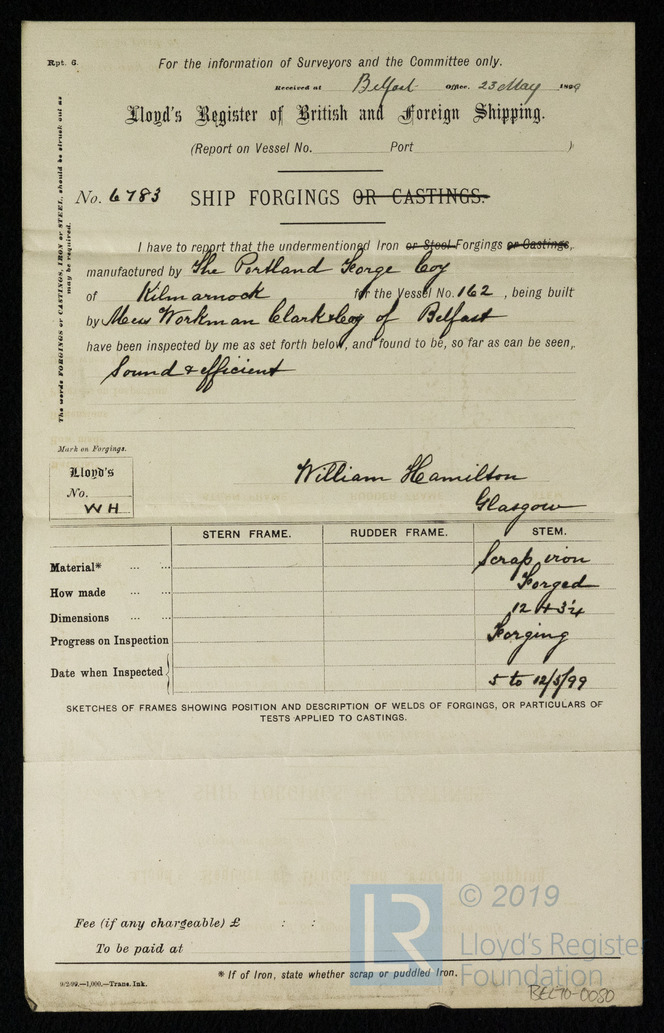 Rpt. 6.
For the information of Surveyors and the Committee only.
Received at Belfast Office, 23 May 1899
Lloyd's Register of British and Foreign Shipping.
(Report on Vessel No. Port )
No. 6783 SHIP FORGINGS OR CASTINGS.
The words FORGINGS or CASTINGS, IRON or STEEL, should be struck out as
may be required.
I have to report that the undermentioned Iron or Steel Forgings or Castings,
manufactured by The Portland Forge Coy
of Kilmarnock for the Vessel No. 162, being built
by Mess Workman Clark & Coy of Belfast
have been inspected by me as set forth below, and found to be, so far as can be seen,
Sound & efficient
Mark on Forgings.
Lloyd's
No.
WH
William Hamilton
Glasgow
STERN FRAME. RUDDER FRAME. STEM.
Material* ... ... Scrap iron
How made ... ... Forged
Dimensions ... ... 12 x 3¼
Progress on Inspection Forging
Date when Inspected 5 to 12/5/99
SKETCHES OF FRAMES SHOWING POSITION AND DESCRIPTION OF WELDS OF FORGINGS, OR PARTICULARS OF
TESTS APPLIED TO CASTINGS.
Fee (if any chargeable) £ : :
To be paid at
* If of Iron, state whether scrap or puddled Iron.
9/2/99.—1,000.—Trans. Ink.
LR
© 2019
Lloyd's Register
Foundation
BEL70-0080